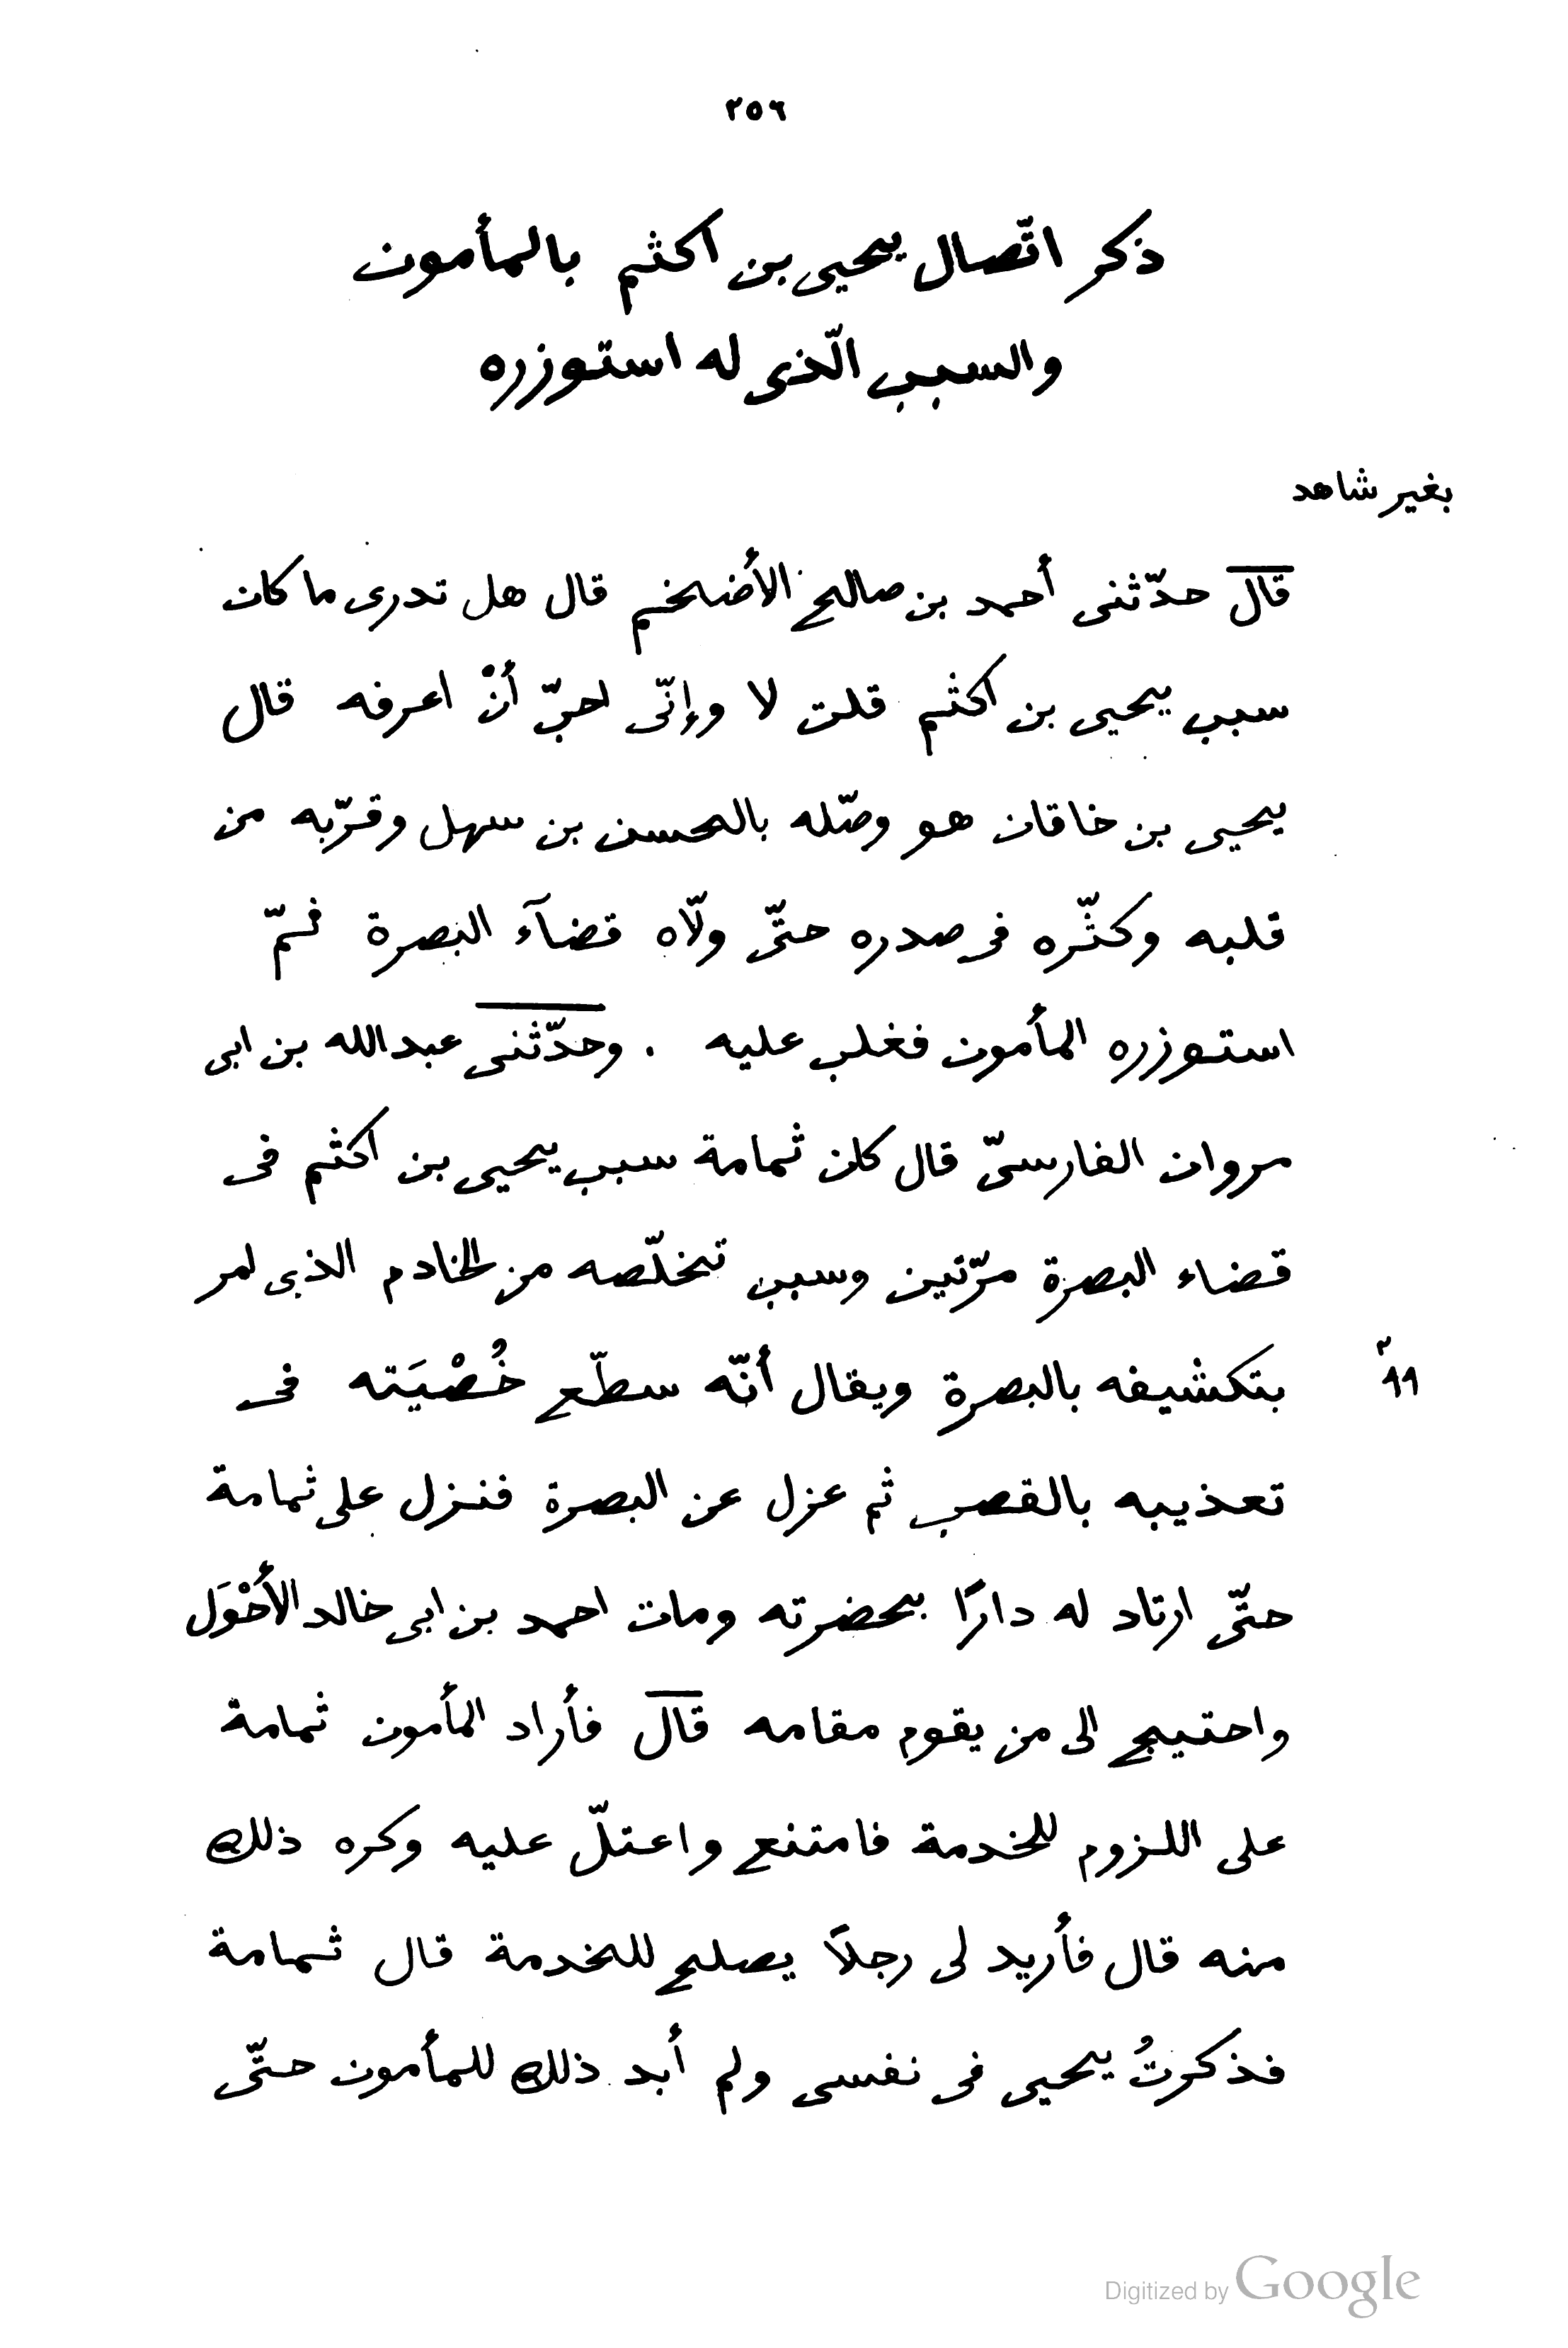 ٢٥٦
ذكر اتّصال يحيى بن اكثم بالمأمون
والسبب الّذى له استوزره
بغير شاهد
قال حدّثنى أحمد بن صالح الأضخم قال هل تدرى ما كان
سبب يحيى بن اكثم قلت لا وإنّى احبّ أنْ اعرفه قال
يحيى بن خاقان هو وصّله بالحسن بن سهل وقرّبه من
قلبه وكثّره فى صدره حتّى ولّاه قضآء البصرة ثمّ
استوزره المأمون فغلب عليه . وحدّثنى عبد الله بن ابى
مروان الفارسىّ قال كان ثمامة سبب يحيى بن اكثم فى
قضاء البصرة مرّتين وسبب تخلّصه من الخادم الذى امر
بتكشيفه بالبصرة ويقال أنّه سطّع خُصْيَته فى
تعذيبه بالقصب ثم عزل عن البصرة فنزل على ثمامة
حتّى ارتاد له دارًا بحضرته ومات احمد بن ابى خالد الأحْوَل
واحتيج الى من يقوم مقامه قال فأراد المأمون ثمامة
على اللزوم للخدمة فامتنع واعتلّ عليه وكره ذلك
منه قال فأريد لى رجلًا يصلح للخدمة قال ثمامة
فذكرتُ يحيى فى نفسى ولم أبد ذلك للمأمون حتّى
Digitized by Google